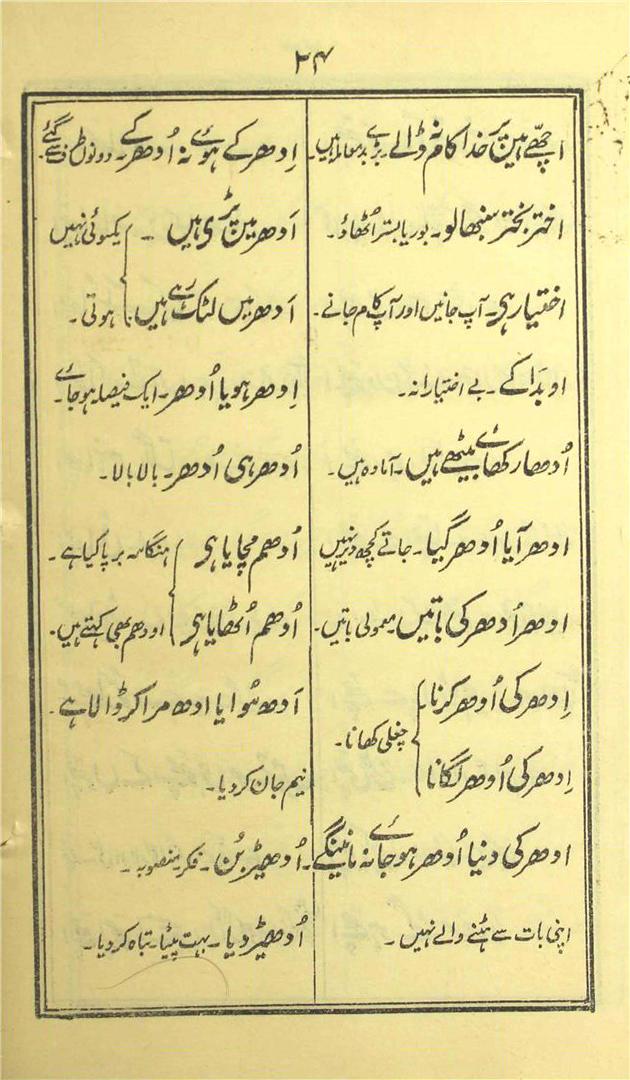 ۲۴
اچھے ہین پر خدا کام نہ ڈالے۔ بڑے بدمعاملہ ہیں۔
اختر بختر سنبھالو۔ بوریا بستر اُٹھاؤ۔
اختیار ہی۔ آپ جانیں اور آپ کا کام جانے۔
اوبدا کے۔ بے اختیارانہ۔
اُدھار کھائے بیٹھے ہیں۔ آمادہ ہیں۔
ادھر آیا اُودھر گیا۔ جاتے کچھ دیر نہیں
ادھر اُدھر کی باتیں۔ معمولی باتیں۔
اِدھر کی اُودھر کرنا
چغلی کھانا۔
اِدھر کی اُودھر لگانا
ادھر کی دنیا اُودھر ہو جائے نہ مانینگے۔
اپنی بات سے ہٹنے والے نہیں۔
اِدھر کے ہوئے نہ اُدھر کے۔ دونوں طرف سے گئے۔
اَدھر مین پڑی ہیں۔ یکسوئی نہیں
اَدھر میں لٹک رہے ہیں ہوتی۔
اِدھر ہو یا اُودھر۔ ایک فیصلہ ہو جائے۔
اُدھر ہی اُدھر۔ بالا بالا۔
اُدھم مچایا ہی ہنگامہ برپا کیا ہے۔
اُدھم اُٹھایا ہی اودھم بھی کہتے ہیں۔
اَدھ مُوا یا ادھ مرا کر ڈالا ہے۔
نیم جان کر دیا۔
اُودھیڑ بُن۔ فکر منصوبہ۔
اُودھیڑ دیا۔ بہت پیٹا۔ تباہ کر دیا۔